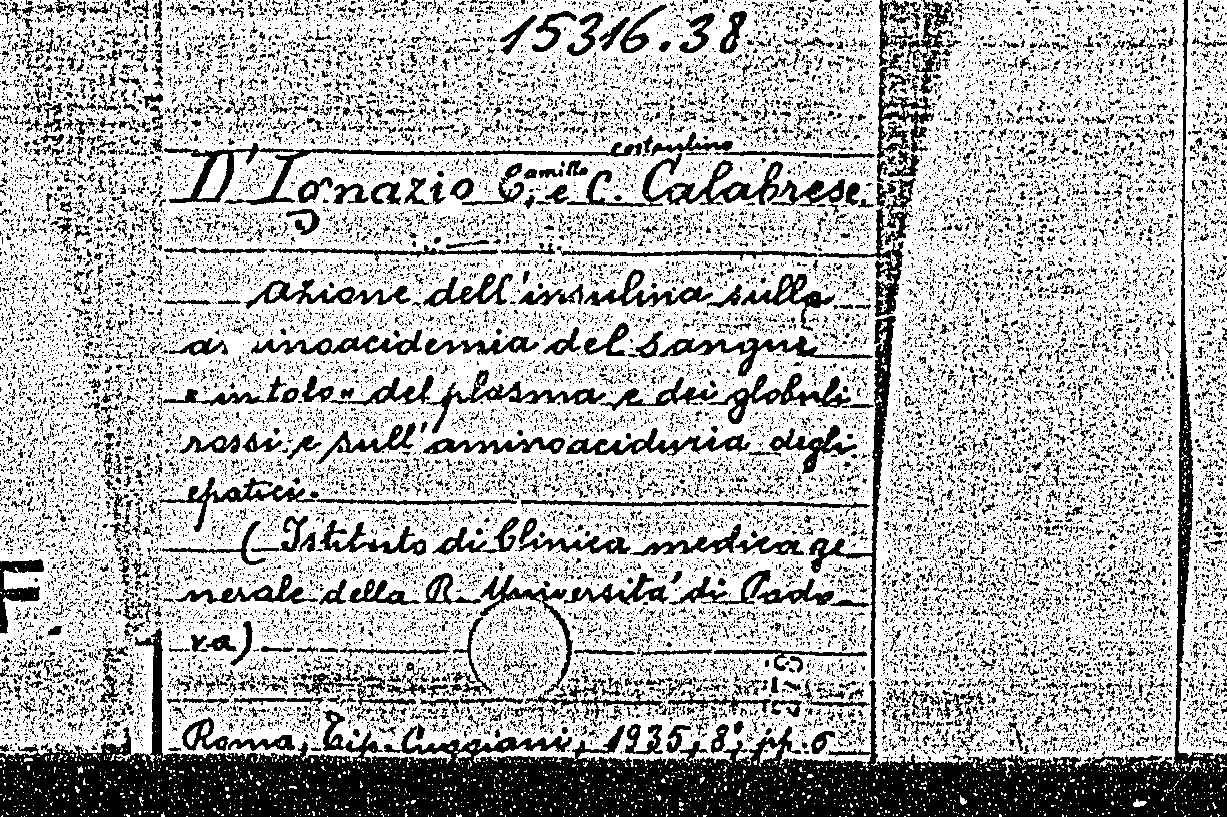 15316.38
costantino
D'Ignazio Camillo, e C. Calabrese.
Azione dell'insulina sulla
aminoacidemia del sangue
"in toto" del plasma e dei globuli
rossi e sull'aminoaciduria degli
epatici.
(Istituto di Clinica medica ge
nerale della R. Universita' di Pado
va)
Roma, Tip. Cuggiani, 1935, 8°, pp. 6